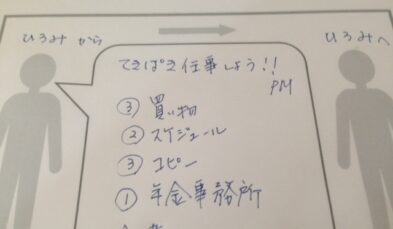 ひろみ から
ひろみへ
てきぱき仕事しよう!!
PM
③ 買い物
② スケジュール
③ コピー
① 年金事務所